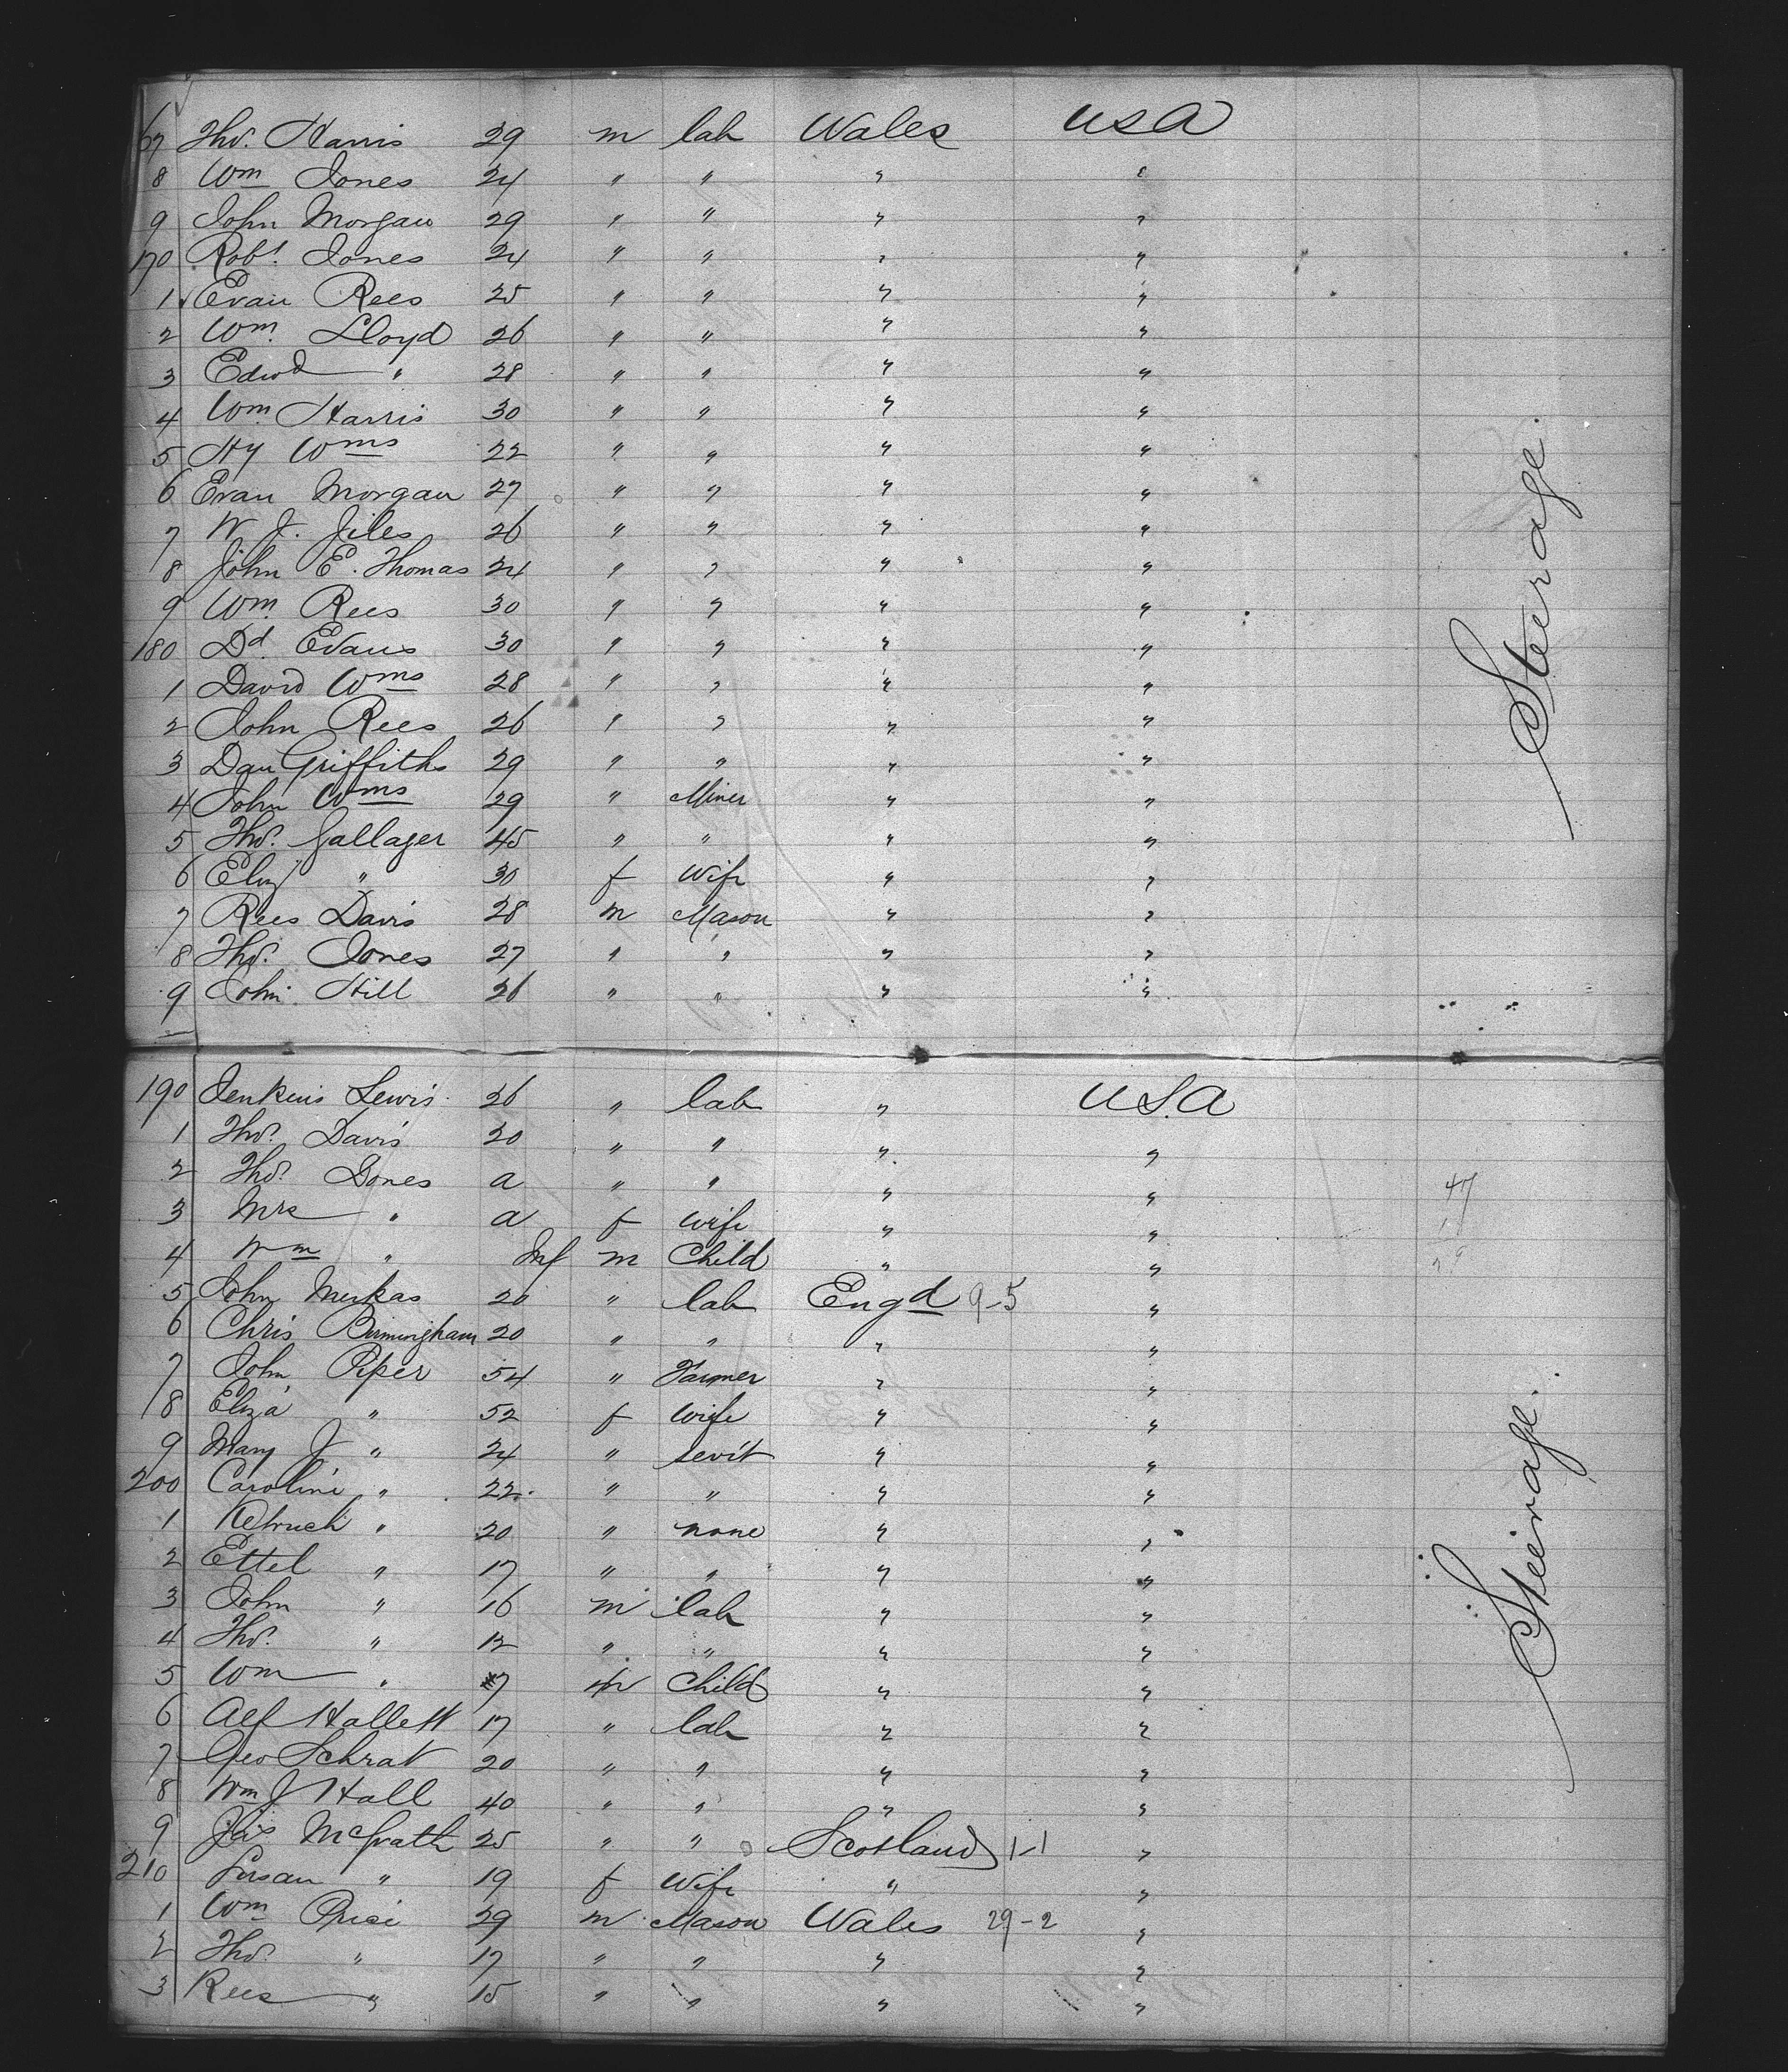 67 Thos. Harris 29 m lab Wales USA
8 Wm Jones 24 " " " "
9 John Morgan 29 " " " "
170 Robt. Jones 24 " " " "
1 Evan Rees 25 " " " "
2 Wm. Lloyd 26 " " " "
3 Edwd " 28 " " " "
4 Wm Harris 30 " " " "
5 Hy Wms 22 " " " "
6 Evan Morgan 27 " " " "
7 W. J. Jiles 26 " " " "
8 John E. Thomas 24 " " " "
9 Wm. Rees 30 " " " "
180 Dd. Evans 30 " " " "
1 David Wms 28 " " " "
2 John Rees 26 " " " "
3 Dan Griffiths 29 " " " "
4 John Wms 29 " Miner " "
5 Thos. Gallager 45 " " " "
6 Eliz " 30 f Wife " "
7 Rees Davis 28 m Mason " "
8 Thos. Jones 27 " " " "
9 John Hill 26 " " " "
Steerage.
190 Jenkins Lewis 26 " lab " U.S.A
1 Thos. Davis 20 " " " "
2 Thos. Jones a " " " "
3 Mrs " a f wife " "
4 Wm " Inf m Child " "
5 John 20 " lab Engd 9-5 "
6 Chris Birmingham 20 " " " "
7 John Piper 54 " Farmer " "
8 Eliza " 52 f Wife " "
9 Mary J " 24 " sevt " "
200 Caroline " 22 " " " "
1 " 20 " none " "
2 Ettel " 17 " " " "
3 John " 16 m lab " "
4 Thos. " 12 " " " "
5 Wm " 7 m Child " "
6 Alf Hallett 17 " lab " "
7 Geo Schrat 20 " " " "
8 Wm J Hall 40 " " " "
9 Jas McGrath 25 " " Scotland 1-1 "
210 Susan " 19 f Wife " "
1 Wm Price 29 m Mason Wales 29-2 "
2 Thos. " 17 " " " "
3 Rees " 15 " " " "
47
Steerage.